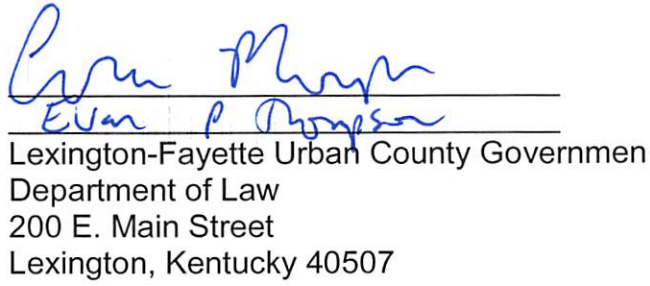 Evan P Thompson
Lexington-Fayette Urban County Governmen
Department of Law
200 E. Main Street
Lexington, Kentucky 40507